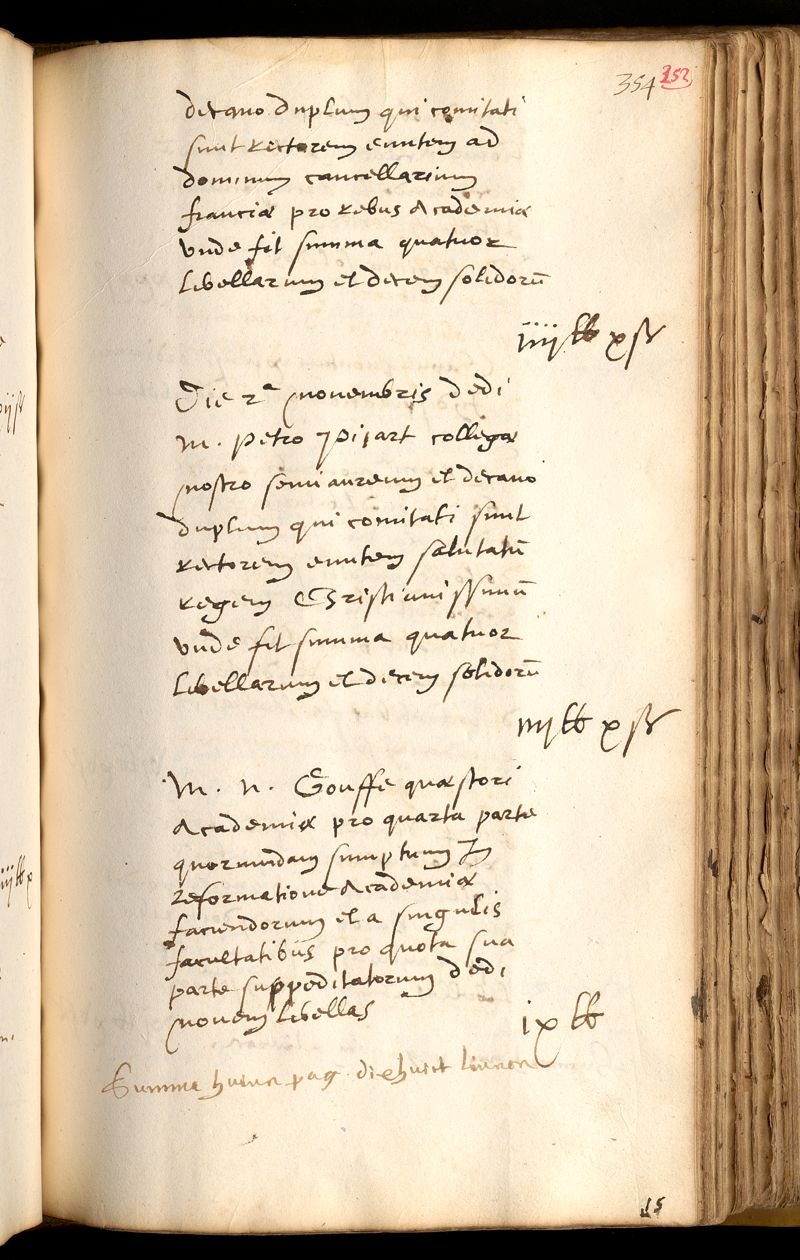 354 352
decano duplum qui comitati
sunt Rectorem euntem ad
dominum cancellarium
franciæ pro Rebus Academiæ
vnde fit summa quatuor
libellarum et decem solidorũ
iiijlb xß
Die 2ª novembris dedi
M. petro pijart collegæ
nostro semiaureum et decano
duplum qui comitati sunt
Rectorem euntem salutatũ
Regem Christianissimũ
vnde fit summa quatuor
libellarum et decem solidorũ
iiijlb xß
M. n. Gouffe quæstori
Academiæ pro quarta parte
quorumdam sumptuum In
reformatione Academiæ
faciendorum et a singulis
facultatibus pro quota sua
parte suppeditatorum dedi
novem libellas
ix lb
Summa huius pag. dixhuict livres
15